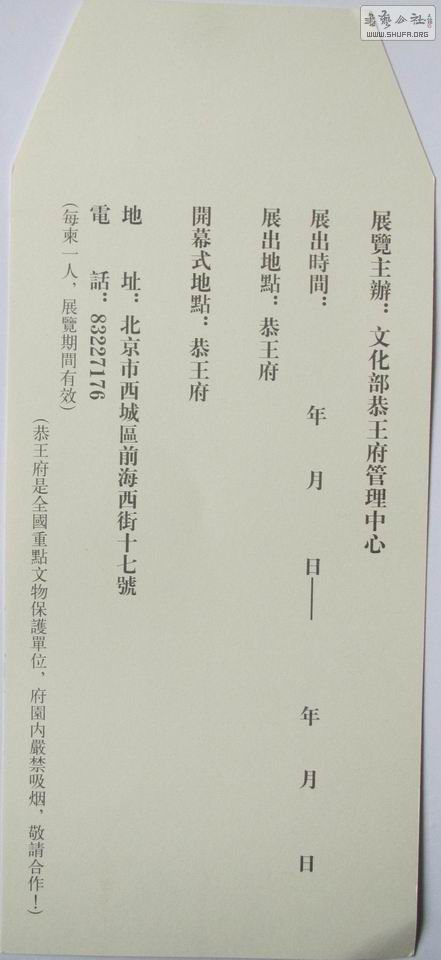 展覽主辦：文化部恭王府管理中心
展出時間： 年 月 日—— 年 月 日
展出地點：恭王府
開幕式地點：恭王府
地 址：北京市西城區前海西街十七號
電 話：83227176
（每柬一人，展覽期間有效）
（恭王府是全國重點文物保護單位，府園内嚴禁吸烟，敬請合作！）
WWW.SHUFA.ORG